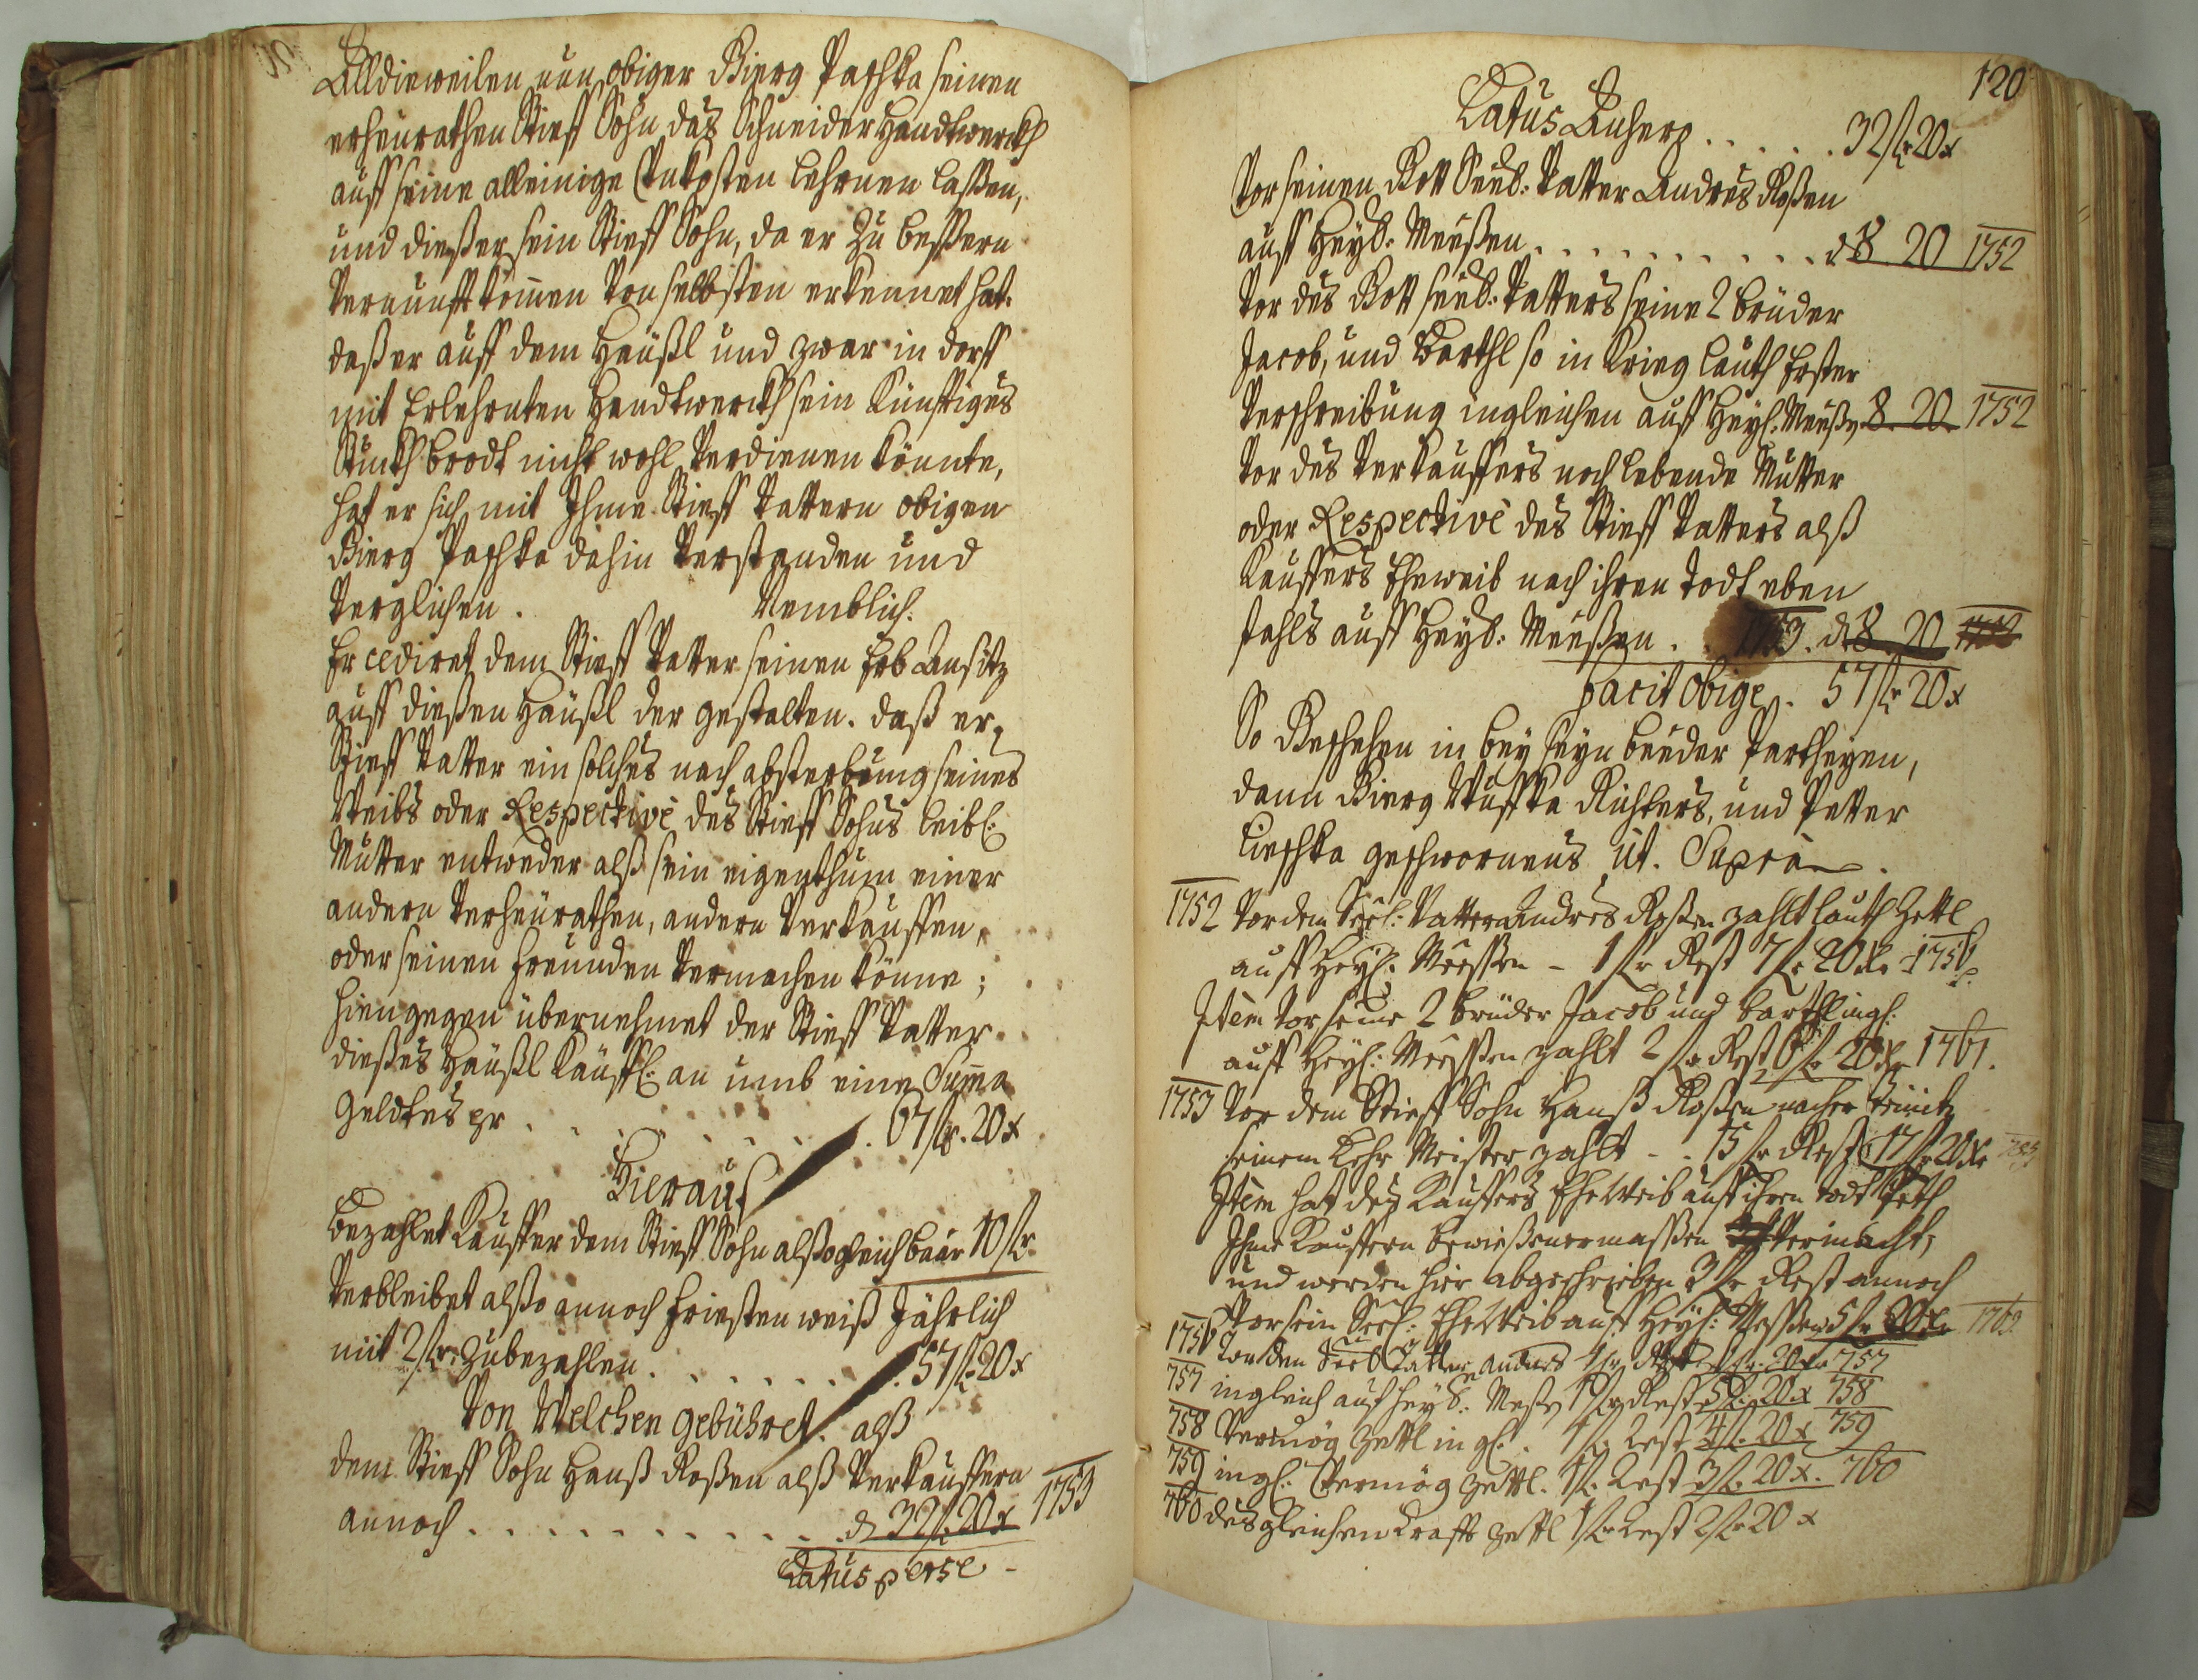 Alldieweilen nun obiger Görg Paschka seinen
erheurathen Stieff Sohn das Schneider Handtwerckh
auff seine alleinige Unkosten lehrnen laßen,
und dießer sein Stieff Sohn, da er zu beßern
Vernunfft kom̄en von selbsten erkennet hat.
daß er auff dem Häußl und zwar in dorff
mit Erlehrnten Handtwerckh sein künfftiges
Stuckh brodt nicht wohl verdienen könnte,
hat er sich mit Ihme Stieff Vattern obigen
Görg Paschka dahin verstanden und
verglichen. Nemblich:
Er cediret dem Stieff Vatter seinen Erb Ansitz
auff dießen Häußl der gestalten. daß er,
Stieff Vatter ein solches nach absterbung seines
Weibs oder Respective des Stieff Sohns leibl:
Mutter entweder alß sein eigenthum einer
andern verheurathen, andern verkauffen,
oder seinen Freunden vermachen könne;
hiengegen übernehmet der Stieff Vatter
dießes Häußl käuffl: an umb eine Sum̄a
geldtes pr . . . . . . . 67 fl. 20 x
Hierauf
bezahlet Kauffer dem Stieff Sohn alßogleich baar 10 fl.
Verbleibet alßo annoch Friesten weiß Jährlich
mit 2 fl. zubezahlen . . . . . . 57 fl. 20 x
Von Welchen gebühret. alß
dem Stieff Sohn Hanß Roßen alß Verkauffern
annoch . . . . . . . . . . 32 fl. 20 x 1753
Latus perse
120
Latus Anhero . . . . . 32 fl. 20 x
Vor seinen Gott Seel: Vatter Andres Roßen
auff Heyl: Meeßen . . . . . . . . . . 8 20 1752
Vor des Gott seel: Vatters seine 2 brüder
Jacob, und Barthl so in Krieg lauth Erster
Verschreibung ingleichen auff Heyl: Meeßen 8. 20. 1752
Vor des Verkauffers noch lebende Mutter
oder Respective des Stieff Vatters alß
Kauffers Eheweib nach ihren Todt eben
fahls auff Heyl: Meeßen . . 1753. 8. 20
Facit Obige . 57 fl. 20 x
So Geschehen in bey seyn beeder Partheyen,
dann Görg Richters, und Petter
Lieschka geschwornens ut. Supra.
1752 Vor dem Seel: Vattern Andres Roßen zahlt lauth Zettl
auff Heyl: Meeßen - 1 fl. Rest 7 fl. 20 x 1756
Item vor seine 2 brüder Jacob und barthl ingl:
auff Heyl: Meeßen zahlt 2 fl. Rest 6 fl. 20 x 1761.
1753 Vor dem Stieff Sohn Hanß Roßen nacher
seinem Lehr Meister zahlt - . 15 fl. Rest 17 fl. 20 x
Item hat des Kauffers Ehe Weib auff ihren todt beth
Ihme Kauffern bewießenermaßen vermacht,
und werden hier abgeschrieben 3 fl. Rest annoch
Vor sein Seel: Ehe Weib auff Heyl: Meßen 5 fl. 20 x
1756 Vor den Seel: Vattern Andres 1 fl. Rest fl. 20 x 757
757 ingleich auf heyl: Meßen 1 fl. Rest 5 fl. 20 x 758
758 Vermög Zettl ingl: . 1 fl. Rest 4 fl. 20 x 759
759 ingl: Vermög Zettl. 1 fl. Rest 3 fl. 20 x. 760
760 desgleichen Krafft Zettl 1 fl. Rest 2 fl. 20 x